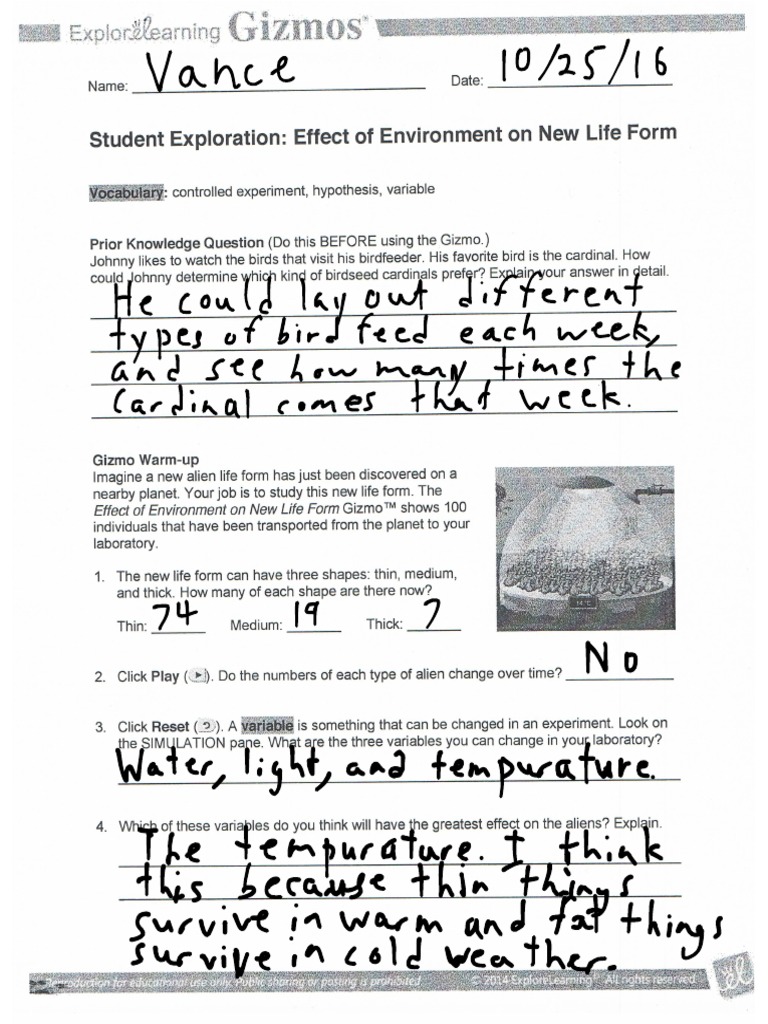 ExploreLearning Gizmos®
Name: Vance Date: 10/25/16
Student Exploration: Effect of Environment on New Life Form
Vocabulary: controlled experiment, hypothesis, variable
Prior Knowledge Question (Do this BEFORE using the Gizmo.)
Johnny likes to watch the birds that visit his birdfeeder. His favorite bird is the cardinal. How
could Johnny determine which kind of birdseed cardinals prefer? Explain your answer in detail.
He could lay out different
types of bird feed each week,
and see how many times the
cardinal comes that week.
Gizmo Warm-up
Imagine a new alien life form has just been discovered on a
nearby planet. Your job is to study this new life form. The
Effect of Environment on New Life Form Gizmo™ shows 100
individuals that have been transported from the planet to your
laboratory.
1. The new life form can have three shapes: thin, medium,
and thick. How many of each shape are there now?
Thin: 74 Medium: 19 Thick: 7
2. Click Play ( ). Do the numbers of each type of alien change over time? No
3. Click Reset ( ). A variable is something that can be changed in an experiment. Look on
the SIMULATION pane. What are the three variables you can change in your laboratory?
Water, light, and tempurature.
4. Which of these variables do you think will have the greatest effect on the aliens? Explain.
The tempurature. I think
this because thin things
survive in warm and fat things
survive in cold weather.
Reproduction for educational use only. Public sharing or posting is prohibited. © 2014 ExploreLearning™ All rights reserved